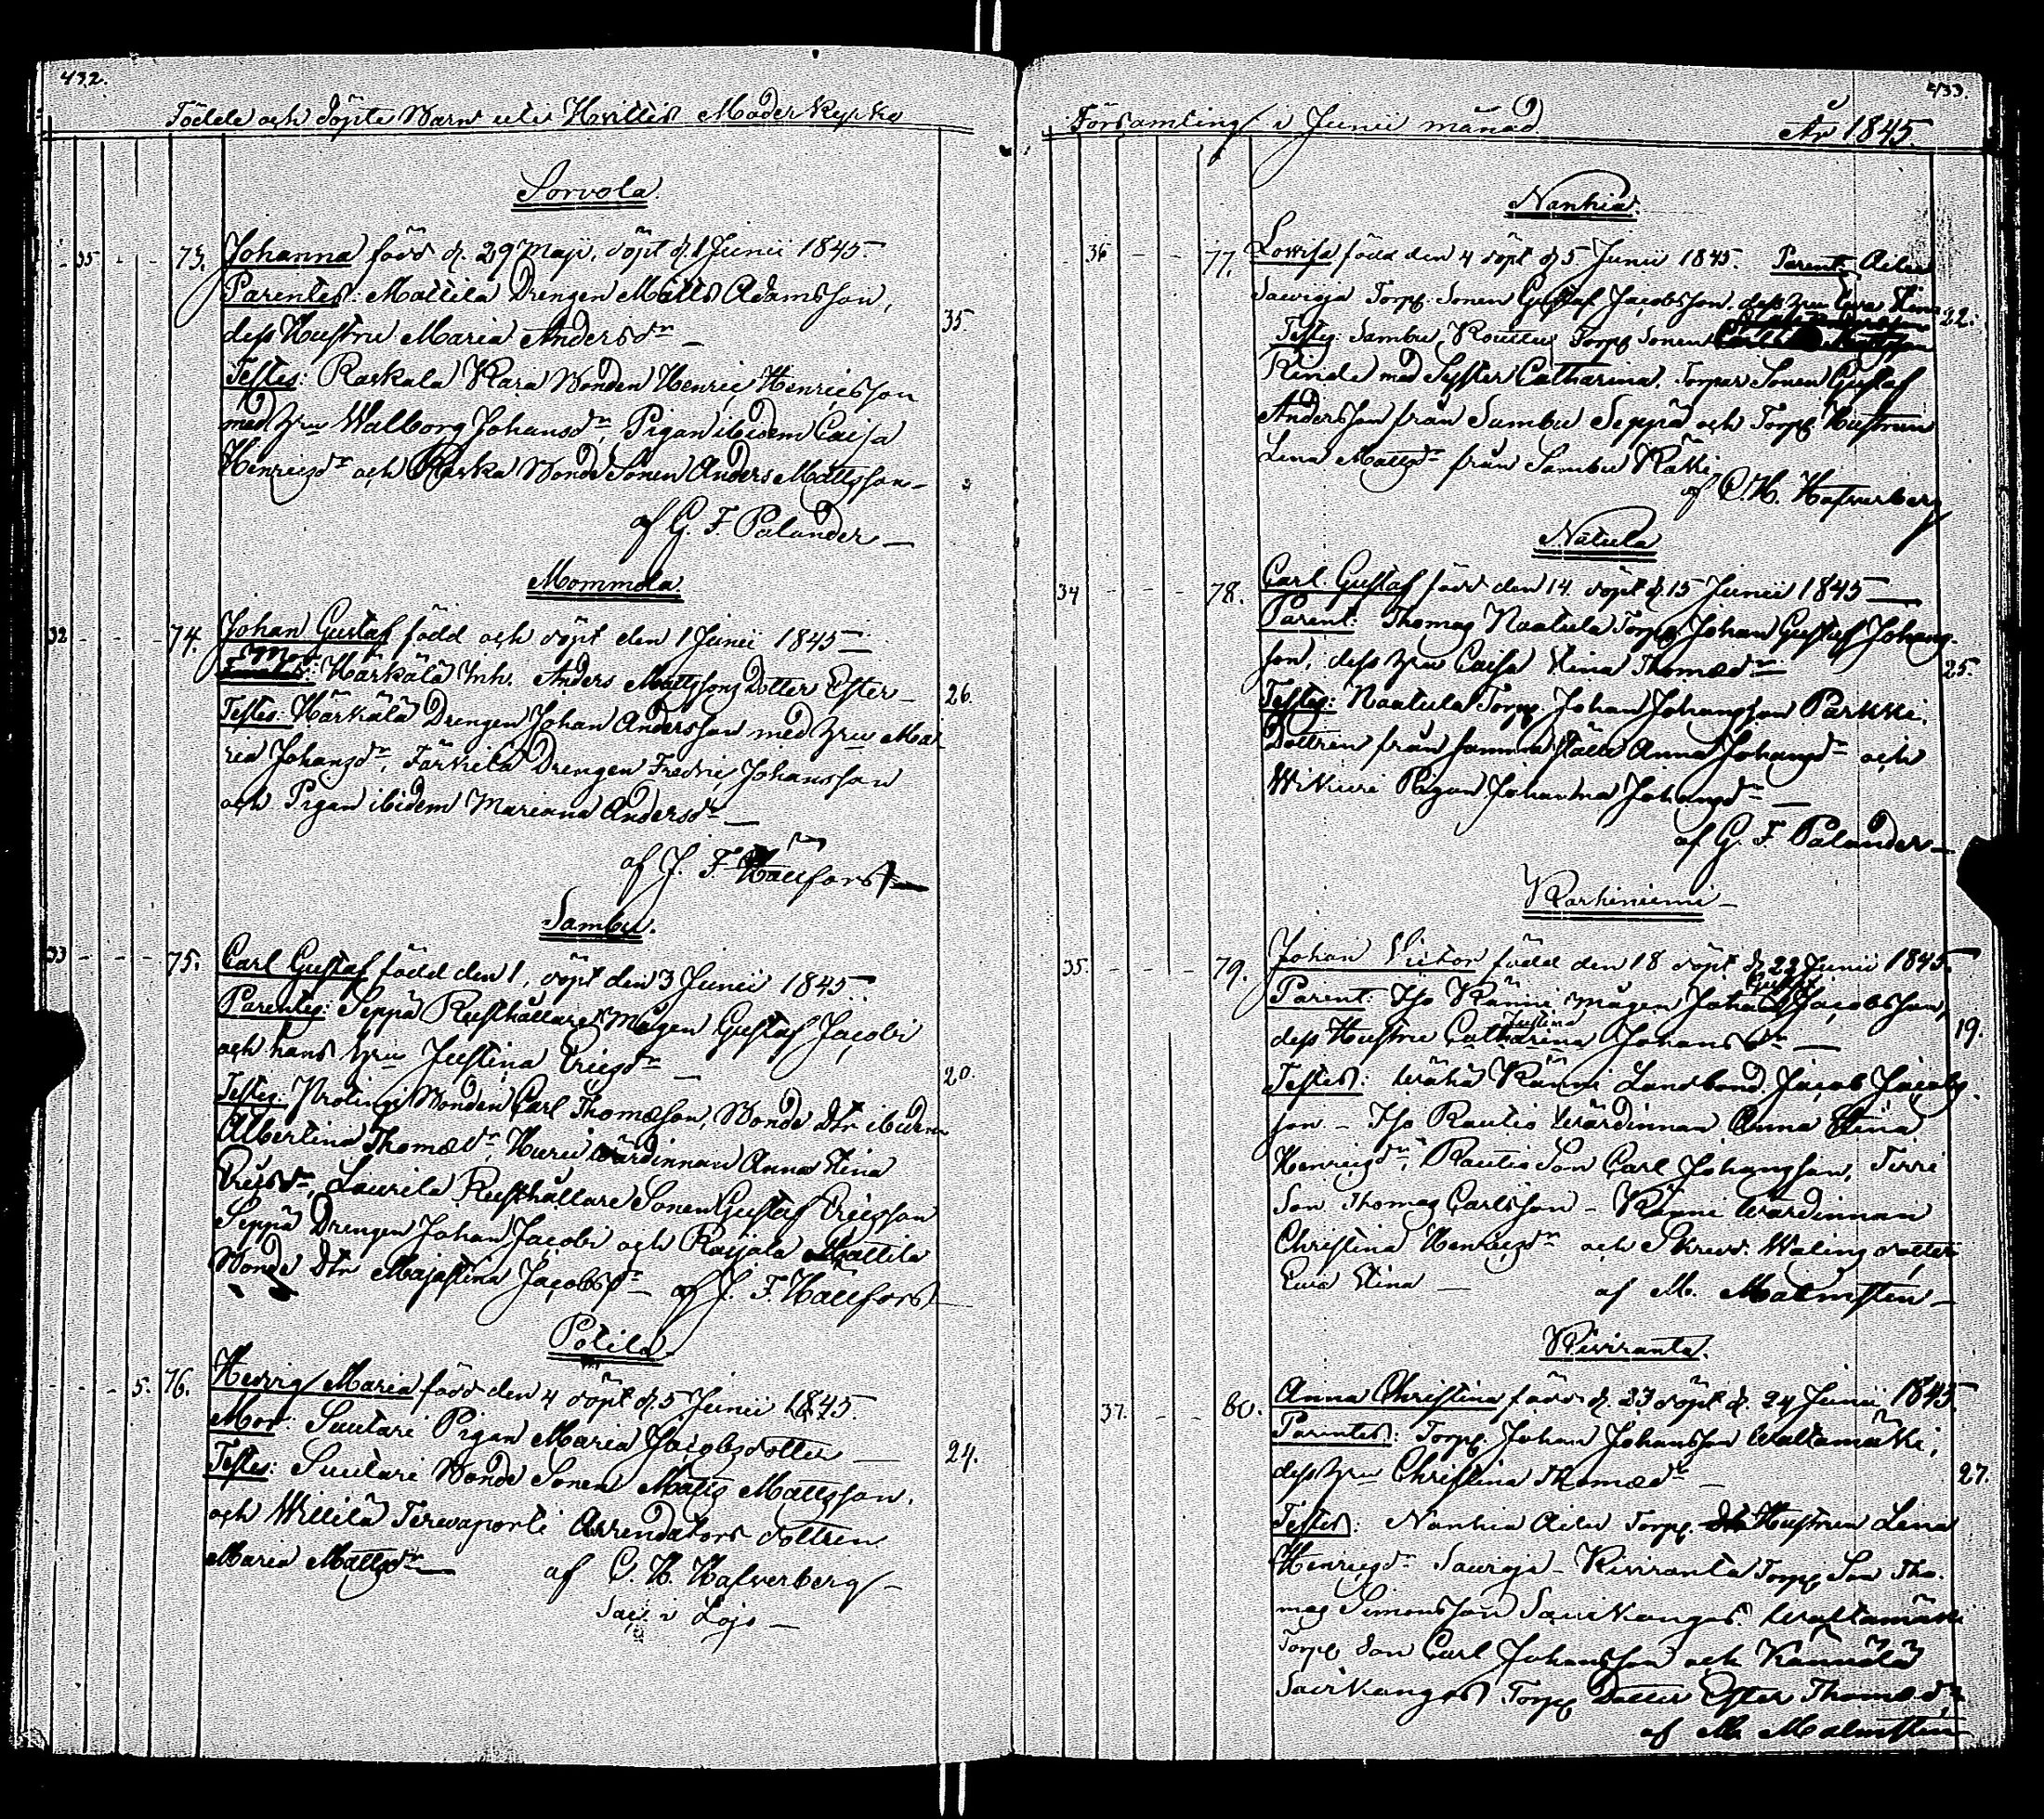 432.
Födde och döpte Barn uti Hvittis Moder Kyrko
Sorvola
35 73. Johanna född d. 29 Maji, döpt d. 1 Junii 1845
Parentes: Mattila Drengen Matts Adamsson,
dess Hustru Maria Andersdr 35.
Testes: Raskala Kara Bonden Henric Henricsson
med hru Walborg Johansdr, Pigan ibidem Caisa
Henricsdr och Raska Bonde Sonen Anders Mattsson
af G. F. Palander
Mommola
32 74. Johan Gustaf född och döpt den 1 Junii 1845
Mor: Härkälä Inh. Anders Mattssons Dotter Ester 26.
Testes: Härkälä Drengen Johan Andersson med hru Ma-
ria Johansdr, Färkilä Drengen Fredric Johansson
och Pigan ibidem Mariana Andersdr
af J. F. Hällfors
Sambu.
33 75. Carl Gustaf född den 1, döpt den 3 Junii 1845
Parentes: Seppä Rusthållares Mågen Gustaf Jacobi
och hans hru Justina Ericsdr 20.
Testes: Bonden Carl Thomasson, Bonde Dtr ibidem
Albertina Thomædr, Huru Wärdinnan Anna Stina
Ericsdr, Laurila Rusthållare Sonen Gustaf Ericsson
Seppä Drengen Johan Jacobi och Raijala Mattila
Bonde Dtr Majastina Jacobsdr af J. F. Hällfors
Potila
5. 76. Hedvig Maria född den 4 döpt d. 5 Junii 1845.
Mor: Suutari Pigan Maria Jacobsdotter 24.
Testes: Suutari Bonde Sonen Matts Mattsson,
och Willilä Terwaporti Arrendators dottren
Maria Mattsdr af C. H. Hafverberg
Sac. i Lojo
433.
Församling i Junii månad År 1845.
Nanhia
36 77. Lovisa född den 4 döpt d. 5 Junii 1845. Parent: Ailus
Sawioja Torp. Sonen Gustaf Jacobsson, dess hru Ewa Stina 22.
Testes: Sambu Torp. Sonen
Rinde med Syster Catharina, Torpar Sonen Gustaf
Andersson från Sambu Seppä och Torp. Hustrun
Lena Mattsdr från Sambu Räkki
af C. H. Hafverberg
Natula
34 78. Carl Gustaf född den 14. döpt d. 15 Junii 1845
Parent: Thomas Naatula Torp. Johan Gustaf Johans-
son, dess hru Caisa Stina Thomædr 25.
Testes: Naatula Torp. Johan Johansson Parkki.
Dottren från samma ställe Anna Johansdr och
Wikuri Pigan Johanna Johansdr
af G. F. Palander
Karhiniemi
35. 79. Johan Victor född den 18 döpt d. 23 Junii 1845.
Gustaf
Parent: Iso Känni mågen Johan Jacobsson,
Justina
dess Hustru Catharina Johansdr 19.
Testes: Wähä Känni Landbond. Jacob Jacobs-
son - Iso Rautio Wärdinnan Anna Stina
Henricsdr, Rautio Son Carl Johansson, Tirri
Son Thomas Carlsson - Känni Wärdinnan
Christina Henricsdr och Skrud. Walins dotter
Ewa Stina af M. Malmstén
Kiviranta.
37. 80. Anna Christina född d. 23 döpt d. 24 Junii 1845
Parentes: Torp. Johan Johansson Waltamäki,
dess hru Christina Thomædr 27.
Testes: Nanhia Ailus Torp. Hustrun Lena
Henricsdr Sawioja - Kiviranta Torp. Son Tho-
mas Simonsson Saukangas. Waltamäki
Torp. Son Carl Johansson och Kännölä
Saukangas Torp. Dotter Ester Thomædr
af M. Malmstén